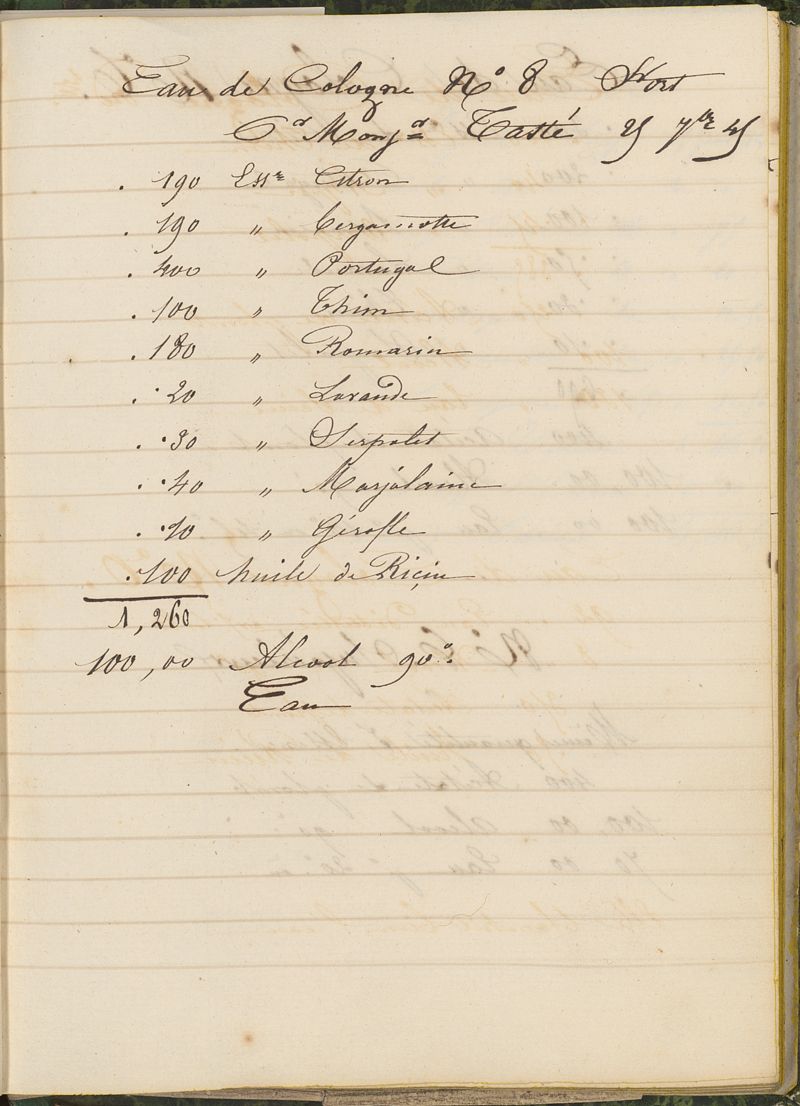 Eau de Cologne N° 8 Fort
Pr Monjr Tasté 25 7bre 45
190 Essce Citron
190 " Bergamotte
400 " Portugal
100 " Thim
180 " Romarin
20 " Lavande
30 " Serpolet
40 " Marjolaine
10 " Gérofle
100 huile de Ricin
1,260
100,00 Alcool 90°
Eau